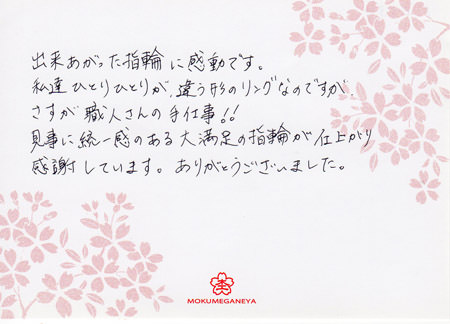 出来あがった指輪に感動です。
私達ひとりひとりが、違う形のリングなのですが、
さすが職人さんの手仕事!!
見事に統一感のある大満足の指輪が仕上がり
感謝しています。ありがとうございました。
MOKUMEGANEYA